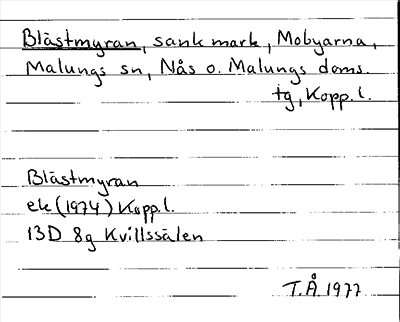 Blästmyran, sank mark, Mobyarna,
Malungs sn, Nås o. Malungs doms.
tg, Kopp. l.
Blästmyran
ek (1974) Kopp.l.
13D 8g Kvillssälen
T.Å. 1977